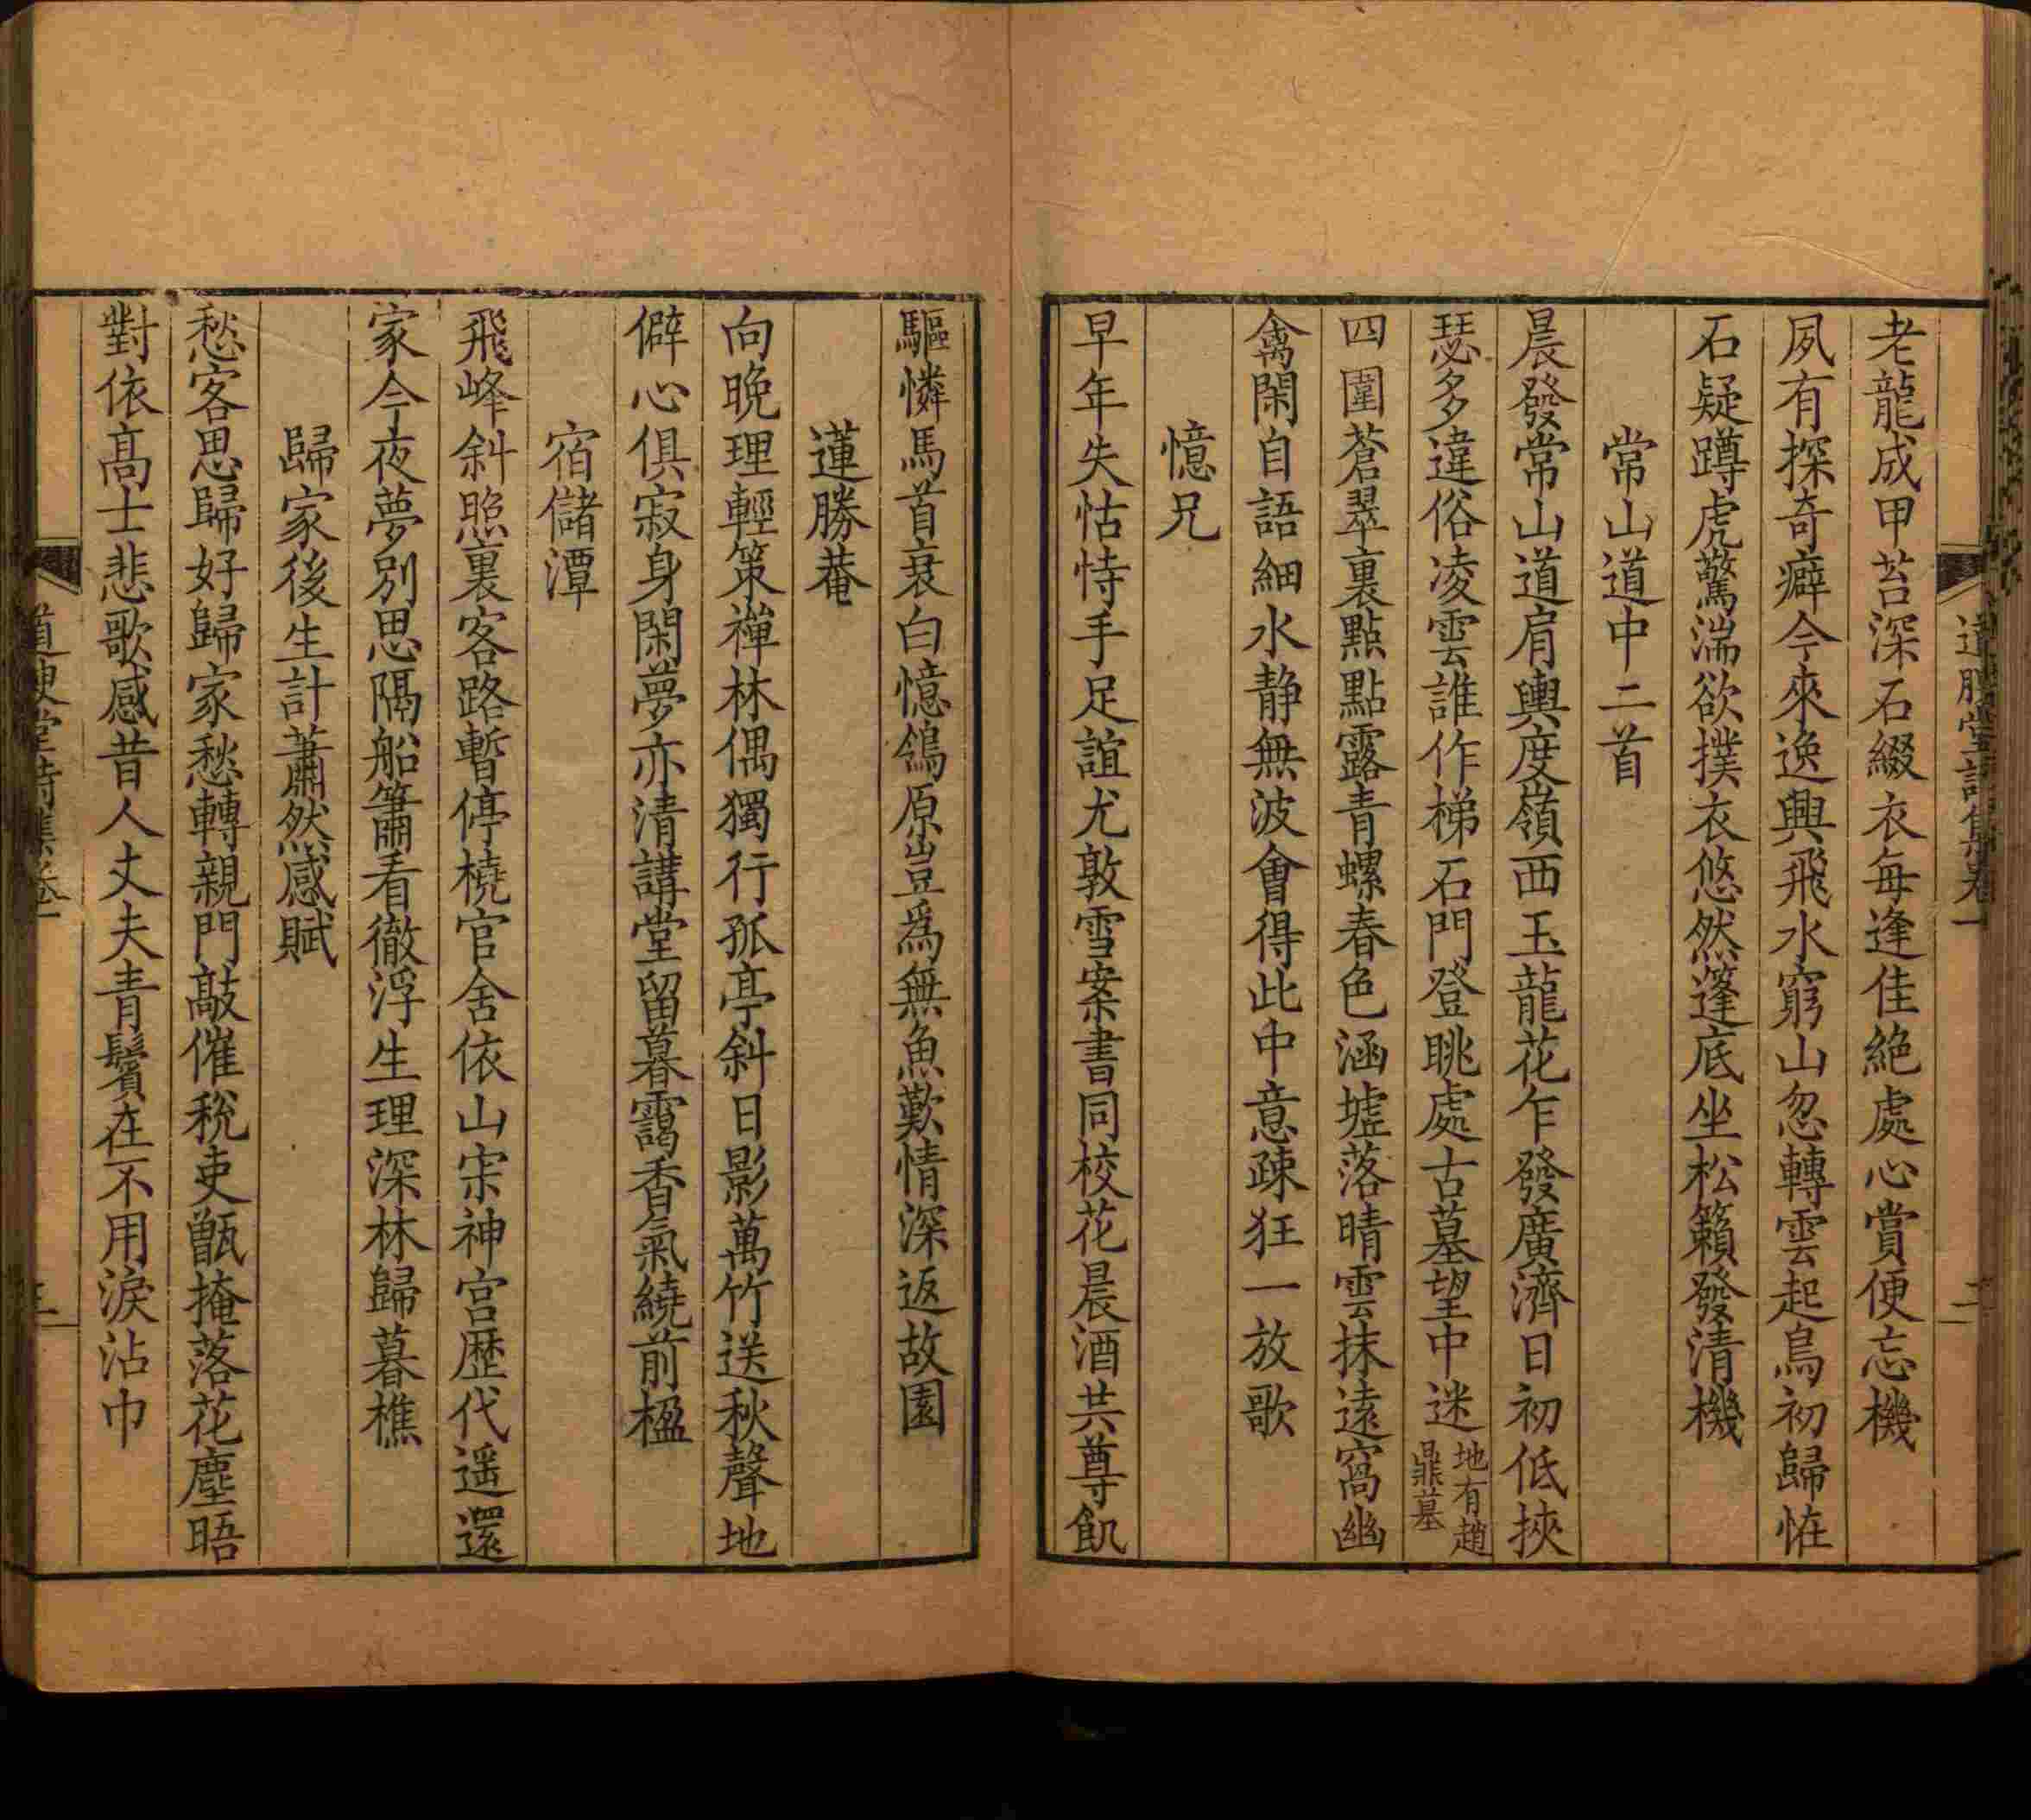 老龍成甲苔深石綴衣每逢佳絶處心賞便忘機
夙有探奇癖今來逸興飛水窮山忽轉雲起鳥初歸恠
石疑蹲虎驚湍欲撲衣悠然蓬底坐松籟發清機
常山道中二首
晨發常山道肩輿度嶺西玉龍花乍發廣濟日初低挾
瑟多違俗凌雲誰作梯石門登眺處古墓望中迷地有趙鼎墓
四圍蒼翠裏點點露青螺春色涵墟落晴雲抹遠窩幽
禽閑自語細水静無波會得此中意疎狂一放歌
憶兄
早年失怙恃手足誼尤敦雪案書同校花晨酒共尊飢
驅憐馬首衰白憶鴒原豈爲無魚歎情深返故園
蓮勝菴
向晚理輕策禅林偶獨行孤亭斜日影萬竹送秋聲地
僻心俱寂身閑夢亦清講堂留暮靄香氣繞前楹
宿儲潭
飛峰斜照裏客路暫停橈官舍依山宗神宫歴代遥還
家今夜夢别思隔船簫看徹浮生理深林歸暮樵
歸家後生計蕭然感賦
愁客思歸好歸家愁轉親門敲催稅吏甑掩落花塵晤
對依高士悲歌感昔人丈夫青鬢在不用淚沾巾
堂詩集卷一
二
堂詩集卷一
三